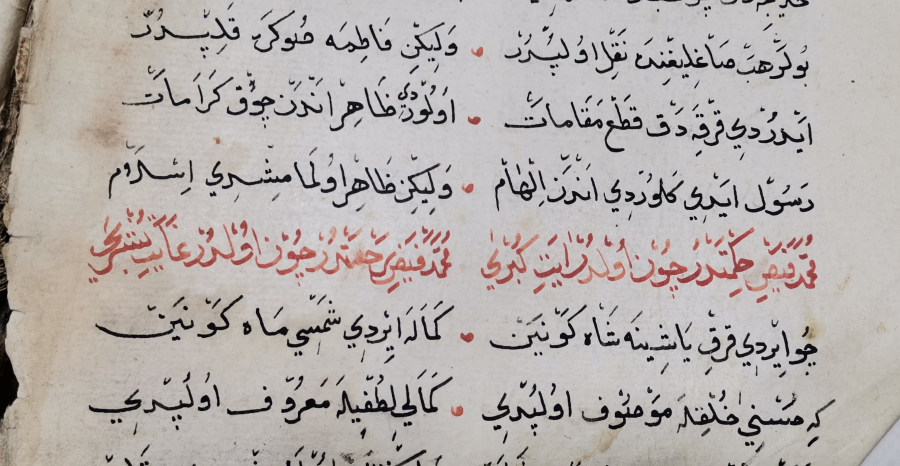 بُولَرْ هَبْ صَاغِلِيغِنْدَه نَقْل اوُلُپْدُرْ • وَلِيكِنْ فَاطِمَه صُوكَرَه قَلِپْدُرْ
ايْدَرْدِي قِرْقَه دَكْ قَطْعِ مَقَامَاتْ • اوُلُورْدِي ظَاهِرْ انْدَنْ چُوقْ كَرَامَاتْ
رَسُولْ ايدِي كَلُورْدِي انْدَنْ اِلْهَامْ • وَلِيكِنْ ظَاهِرْ اوُلْمَامِشْدِي اِسْلَامْ
مُحَمَّدْ فَيْضِ حِكْمَتْدُرْ چُونْ اوُلْدُرْ ايَتِ كُبْرٰي مُحَمَّدْ فَيْضِ رَحْمَتْدُرْ چُونْ اوُلْدُرْ غَايَتِ بُشْرٰي
چُو ايرْدِي قِرْقْ يَاشِينَه شَاهِ كَوْنَيْنْ • كَمَالَه ايرْدِي شَمْسِي مَاهِ كَوْنَيْنْ
كِه حُسْنِي خُلْقِلَه مَوْصُوف اوُلُپْدِي • كَمَالِي لُطْفِيلَه مَعْرُوف اوُلُپْدِي